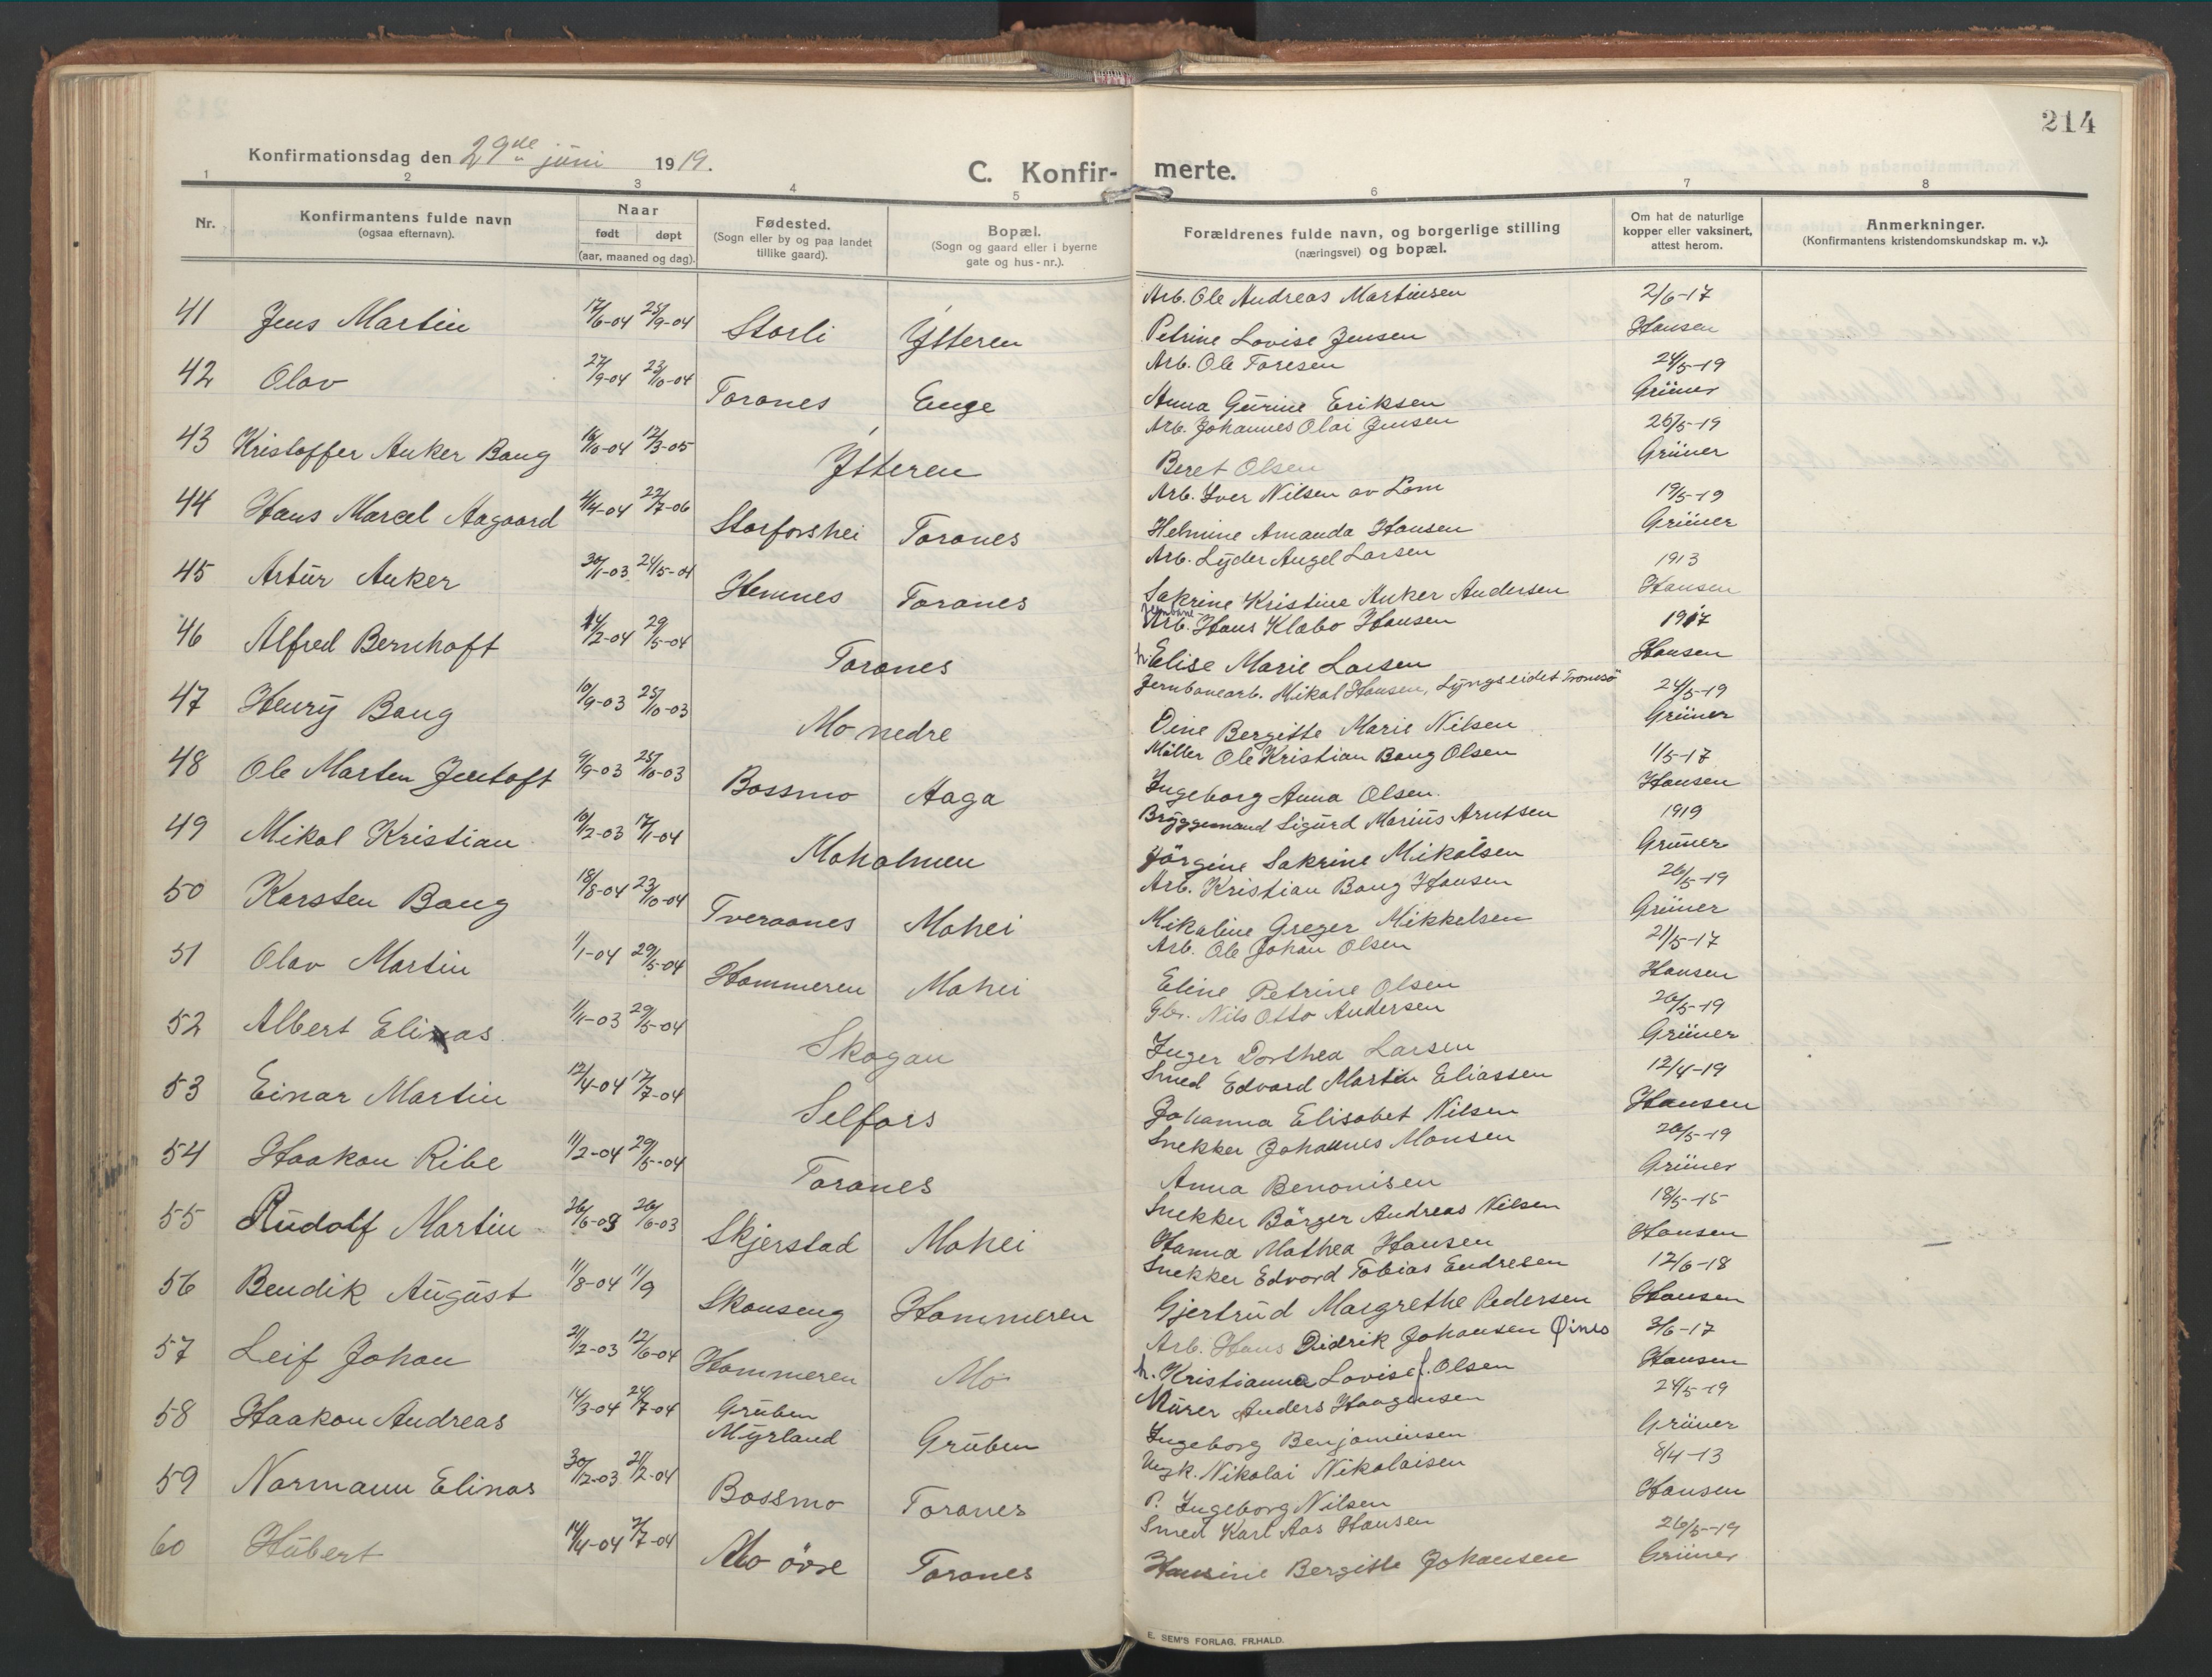 214
Konfirmationsdag den 29de juni 1919.
C. Konfir- merte.
1 2 3 4 5 6 7 8
Nr.
Konfirmantens fulde navn
(ogsaa efternavn).
Naar
født døpt
(aar, maaned og dag).
Fødested.
(Sogn eller by og paa landet
tillike gaard).
Bopæl.
(Sogn og gaard eller i byerne
gate og hus-nr.).
Forældrenes fulde navn, og borgerlige stilling
(næringsvei) og bopæl.
Om hat de naturlige
kopper eller vaksinert,
attest herom.
Anmerkninger.
(Konfirmantens kristendomskundskap m. v.).
41 Jens Martin 17/6-04 25/9-04 Storli Ytteren Arb. Ole Andreas Martinsen 2/6-17
Petrine Lovise Jensen Hansen
42 Olav 27/9-04 23/10-04 Toranes Enge Arb. Ole Toresen 24/5-19
Anna Gurine Eriksen Grüner
43 Kristoffer Anker Bang 16/10-04 12/3-05 Ytteren Arb. Johannes Olai Jensen 26/5-19
Beret Olsen Grüner
44 Hans Marcel Aagaard 4/4-04 22/7-06 Storforshei Toranes Arb. Iver Nilsen av Lom 19/5-19
Helmine Amanda Hansen Grüner
45 Artur Anker 30/11-03 24/5-04 Hemnes Toranes Arb. Lyder Angel Larsen 1913
Sakrine Kristine Anker Andersen Hansen
46 Alfred Bernhoft 14/2-04 29/5-04 Toranes Jernbane-Arb. Hans Klæbo Hansen 1917
h. Elise Marie Larsen Hansen
47 Henry Bang 10/9-03 25/10-03 Mo nedre Jernbanearb. Mikal Hansen, Lyngseidet Tromsö 24/5-19
Oine Bergitte Marie Nilsen Grüner
48 Ole Marten Jentoft 9/9-03 25/10-03 Bossmo Aaga Möller Ole Kristian Bang Olsen 1/5-17
Ingeborg Anna Olsen. Hansen
49 Mikal Kristian 10/12-03 17/1-04 Moholmen Bryggemand Sigurd Marius Arntsen 1919
Jörgine Sakrine Mikalsen Grüner
50 Karsten Bang 18/8-04 23/10-04 Tveraanes Mohei Arb. Kristian Bang Hansen 26/5-19
Mikaline Greger Mikkelsen Grüner
51 Olav Martin 1/1-04 29/5-04 Hammeren Mohei Arb. Ole Johan Olsen 21/5-17
Eline Petrine Olsen Hansen
52 Albert Elinas 1/11-03 29/5-04 Skogan Gbr. Nils Otto Andersen 26/5-19
Inger Dorthea Larsen Grüner
53 Einar Martin 12/4-04 17/7-04 Selfors Smed Edvard Martin Eliassen 12/4-19
Johanna Elisabet Nilsen Hansen
54 Haakon Ribe 11/2-04 29/5-04 Toranes Snekker Johannes Monsen 26/5-19
Anna Benonisen Grüner
55 Rudolf Martin 26/6-03 26/6-03 Skjerstad Mohei Snekker Börger Andreas Nilsen 18/5-15
Hanna Mathea Hansen Hansen
56 Bendik August 11/8-04 11/9 Skonseng Hammeren Snekker Edvard Tobias Endresen 12/6-18
Gjertrud Margrethe Pedersen Hansen
57 Leif Johan 21/12-03 12/6-04 Hammeren Mo Arb. Hans Didrik Johansen Øines 3/6-17
h. Kristianna Lovise f. Olsen Hansen
58 Haakon Andreas 14/3-04 24/7-04 Gruben Myrland Gruben Murer Anders Haagensen 24/5-19
Ingeborg Benjaminsen Grüner
59 Normann Elinas 30/12-03 21/2-04 Bossmo Toranes Ungk. Nikolai Nikolaisen 8/4-13
P. Ingeborg Nilsen Hansen
60 Hubert 14/4-04 3/7-04 Mo övre Toranes Smed Karl Aas Hansen 26/5-19
Hansine Bergitte Johansen Grüner
E. SEM'S FORLAG, FR.HALD.